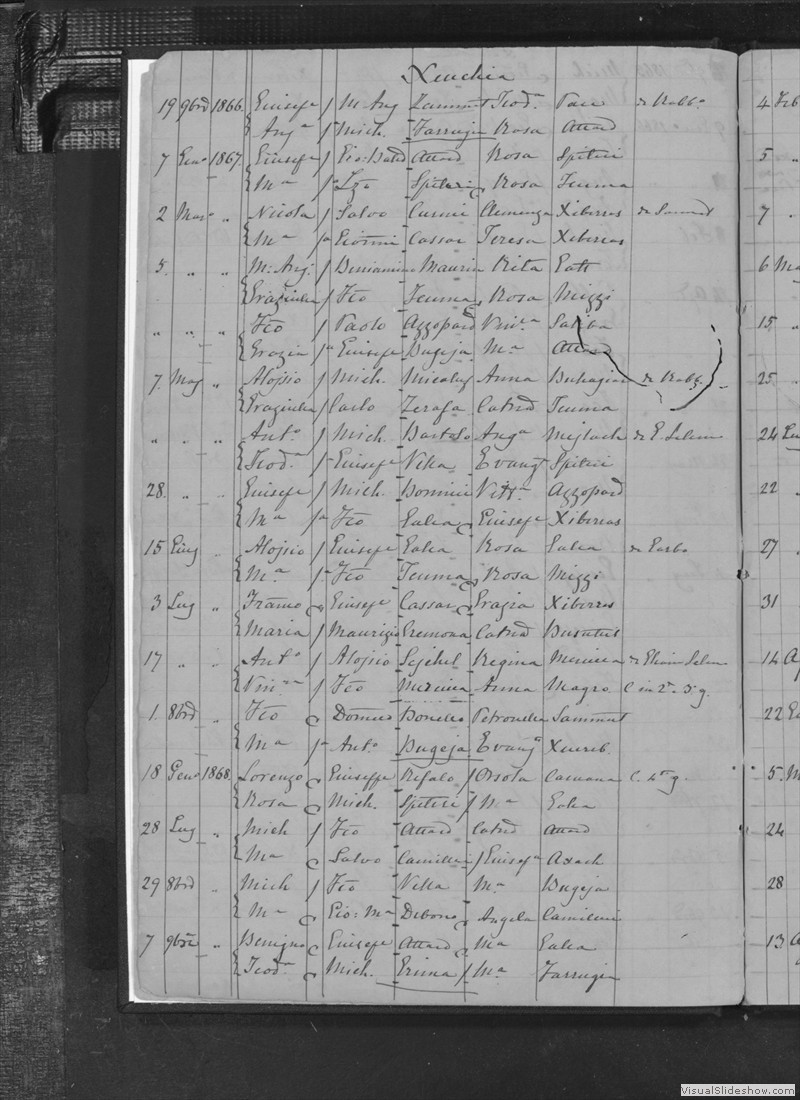 Xeuchia
19 9brd 1866. Giusepe f M. Ang Zammut Teod.a Pace de Rabb.o
Ang.a f Mich. Farrugia Rosa Attard
7 Gen.o 1867. Giusepe f Gio: Batta Attard Rosa Spiteri
M.a f Spiteri Rosa Teuma
2 Mar.o " Nicola f Salvo Curmi Clemenza Xiberras de Sannat
M.a Giovni Cassar Teresa Xiberras
5. " " M. Ang. f Beniamin Maurin Rita Gatt
Graziulla f Fco Teuma Rosa Mizzi
" " " Fco f Paolo Azzopard Vinc.a Saliba
Grazia Giusepe Bugeja M.a Attard
7. Mag " Aloisio f Mich. Micalef Anna Buhagiar de Rabb.
Graziulla f Carlo Zerafa Catrd Teuma
" " " Ant.o f Mich. Bartolo Ang.a Mifsud
Teod.a Giusepe Vella Evang.a Spiteri
28. " " Giusepe f Mich. Dominic Vitt.a Azzopard
M.a Fco Galea Giusepe Xiberras
15 Giug " Aloisio f Giusepe Galea Rosa Galea de Garbo
M.a Fco Teuma Rosa Mizzi
3 Lug " Franco Giusepe Cassar Grazia Xiberras
Maria f Maurizio Cremona Catrd Busuttil
17 " " Ant.o f Aloisio Regina
Vin.za f Fco Anna Magro C. in 2.o 3.o g.
1. 8brd " Fco Domco Bonello Petronilla Sammut
M.a Ant.o Bugeja Evang.a Xuereb.
18 Gen.o 1868. Lorenzo Giuseppe Refalo Orsola Caruana C. 4.o g.
Rosa Mich. Spiteri f M.a Galea
28 Lug " Mich f Fco Attard Catrd Attard
M.a Salvo Camilleri f Giusep.a Axach
29 8brd " Mich f Fco Vella M.a Bugeja
M.a Gio: M.a Debono Angela Camilleri
7 9bre " Benigno Giusepe Attard M.a Galea
Teod.a Mich. f M.a Farrugia
4 Feb
5 "
7 "
6 Ma
15 "
25 "
24
22 "
27 "
31
14 A
22
5. M
24
28
13
VisualSlideshow.com